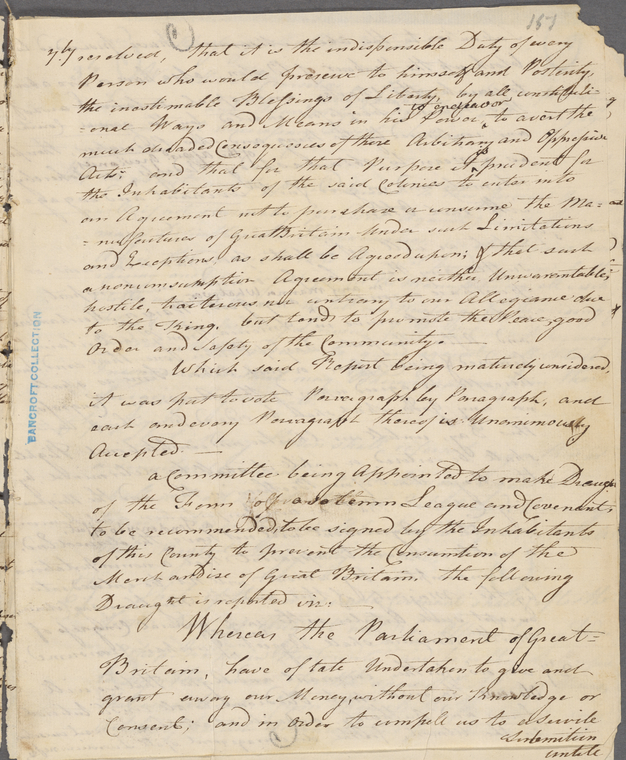 151
7.ly resolved, that it is the indispensible Duty of every
Person who would preserve to himself and Posterity,
the inestimable Blessings of Liberty, by all constituti=
=onal Ways and Means in his Power, to endeavor to avert the
much dreaded Consequences of these Arbitrary and Oppressive
Acts; and that for that Purpose it is prudent for
the Inhabitants of the said Colonies to enter into
an Agreement not to purchase or consume the Ma=
=nufactures of Great Britain under such Limitations
and Exceptions, as shall be Agreed upon; & that such
a nonconsumption Agreement is neither Unwarrantable,
hostile, traiterous nor contrary to our Allegiance due
to the King, but tends to promote the Peace, good
Order and safety of the Community. —
Which said Report being maturely considered,
it was put to vote Paragraph by Paragraph, and
each and every Paragraph thereof is Unanimously
Accepted. —
a Committee being Appointed to make Draught
of the Form of a solemn League and Covenant,
to be recommended, to be signed by the Inhabitants
of this County to prevent the Consumtion of the
Merchandise of Great Britain the following
Draught is reported viz: —
Whereas the Parliament of Great=
Britain, have of late Undertaken to give and
grant away our Money, without our Knowledge or
Consent; and in order to compell us to a servile
Submition
untill
BANCROFT COLLECTION